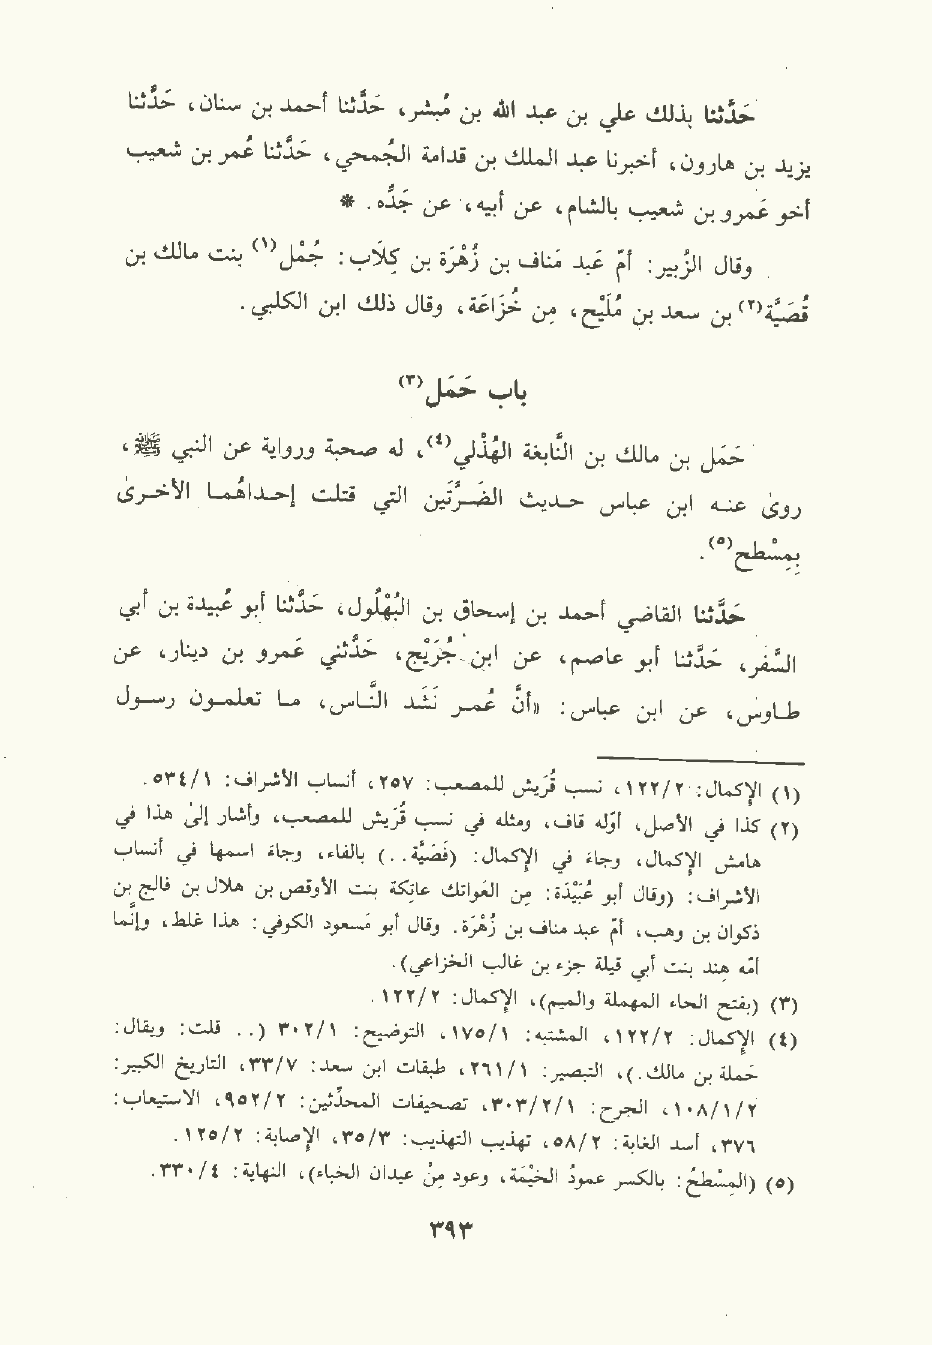 حَدَّثنا بذلك علي بن عبد الله بن مُبشر، حَدَّثنا أحمد بن سنان، حَدَّثنا
يزيد بن هارون، أخبرنا عبد الملك بن قدامة الجُمحي، حَدَّثنا عُمر بن شعيب
أخو عَمرو بن شعيب بالشام، عن أبيه، عن جَدِّه. *
وقال الزُبير: أمّ عَبد مَناف بن زُهْرَة بن كِلَاب: جُمْل(١) بنت مالك بن
قُصَيَّة(٢) بن سعد بن مُلَيْح، مِن خُزَاعَة، وقال ذلك ابن الكلبي.
باب حَمَل(٣)
حَمَل بن مالك بن النَّابغة الهُذْلي(٤)، له صحبة ورواية عن النبي ﷺ،
روىٰ عنه ابن عباس حديث الضَرَّتَين التي قتلت إحداهُما الأخرىٰ
بِمِسْطح(٥).
حَدَّثنا القاضي أحمد بن إسحاق بن البُهْلُول، حَدَّثنا أبو عُبيدة بن أبي
السَّفَر، حَدَّثنا أبو عاصم، عن ابن جُرَيْج، حَدَّثني عَمرو بن دينار، عن
طاوس، عن ابن عباس: «أنَّ عُمر نَشَد النَّاس، ما تعلمون رسول
(١) الإكمال: ١٢٢/٢، نسب قُرَيش للمصعب: ٢٥٧، أنساب الأشراف: ٥٣٤/١.
(٢) كذا في الأصل، أوّله قاف، ومثله في نسب قُرَيش للمصعب، وأشار إلىٰ هذا في
هامش الإكمال، وجاء في الإكمال: (فَصَيَّة..) بالفاء، وجاء اسمها في أنساب
الأشراف: (وقال أبو عُبَيْدَة: مِن العَواتك عاتِكة بنت الأوقص بن هلال بن فالج بن
ذكوان بن وهب، أمّ عبد مناف بن زُهْرَة. وقال أبو مَسعود الكوفي: هذا غلط، وإنَّما
أمّه هِند بنت أبي قيلة جزء بن غالب الخزاعي).
(٣) (بفتح الحاء المهملة والميم)، الإكمال: ١٢٢/٢.
(٤) الإكمال: ١٢٢/٢، المشتبه: ١٧٥/١، التوضيح: ٣٠٢/١ (.. قلت: ويقال:
حَملة بن مالك.)، التبصير: ٢٦١/١، طبقات ابن سعد: ٣٣/٧، التاريخ الكبير:
١٠٨/١/٢، الجرح: ٣٠٣/٢/١، تصحيفات المحدِّثين: ٩٥٢/٢، الاستيعاب:
٣٧٦، أسد الغابة: ٥٨/٢، تهذيب التهذيب: ٣٥/٣، الإصابة: ١٢٥/٢.
(٥) (المِسْطَحُ: بالكسر عمودُ الخَيْمَة، وعود مِنْ عيدان الخباء)، النهاية: ٣٣٠/٤.
٣٩٣